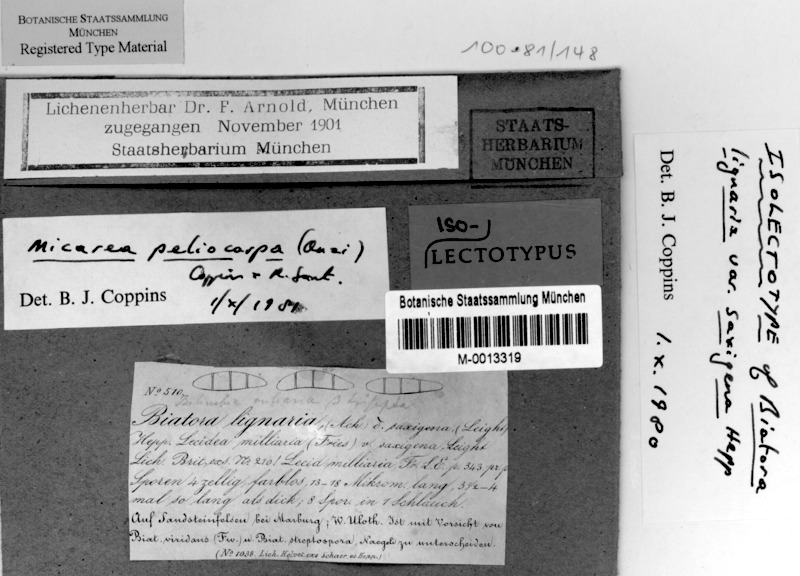 BOTANISCHE STAATSSAMMLUNG
MÜNCHEN
Registered Type Material
100-81/148
Lichenenherbar Dr. F. Arnold, München
zugegangen November 1901
Staatsherbarium München
STAATS-
HERBARIUM
MÜNCHEN
Micarea peliocarpa (Anzi)
Coppins & R. Sant.
Det. B. J. Coppins
1/X/1981
ISO-
LECTOTYPUS
Botanische Staatssammlung München
M-0013319
ISOLECTOTYPE of Biatora
lignaria var. saxigena Hepp
Det. B. J. Coppins 1. X. 1980
No 510.
Biatora lignaria, (Ach) δ. saxigena, (Leight).
Hepp. Lecidea milliaria (Fries) v. saxigena, Leight
Lich. Brit. exs. Nr. 210! Lecid. milliaria, Fr. L. E. p. 343 pr. p.
Sporen 4 zellig, farblos, 13-18 Mikrom. lang, 3½-4
mal so lang als dick; 8 Spor. in 1 Schlauch.
Auf Sandsteinfelsen bei Marburg; W. Uloth. Ist mit Vorsicht von
Biat. viridans (Fw.) u. Biat. streptospora, Naegeli zu unterscheiden.
(No 1038. Lich. Helvet. exs. Schaer. et Hepp.)